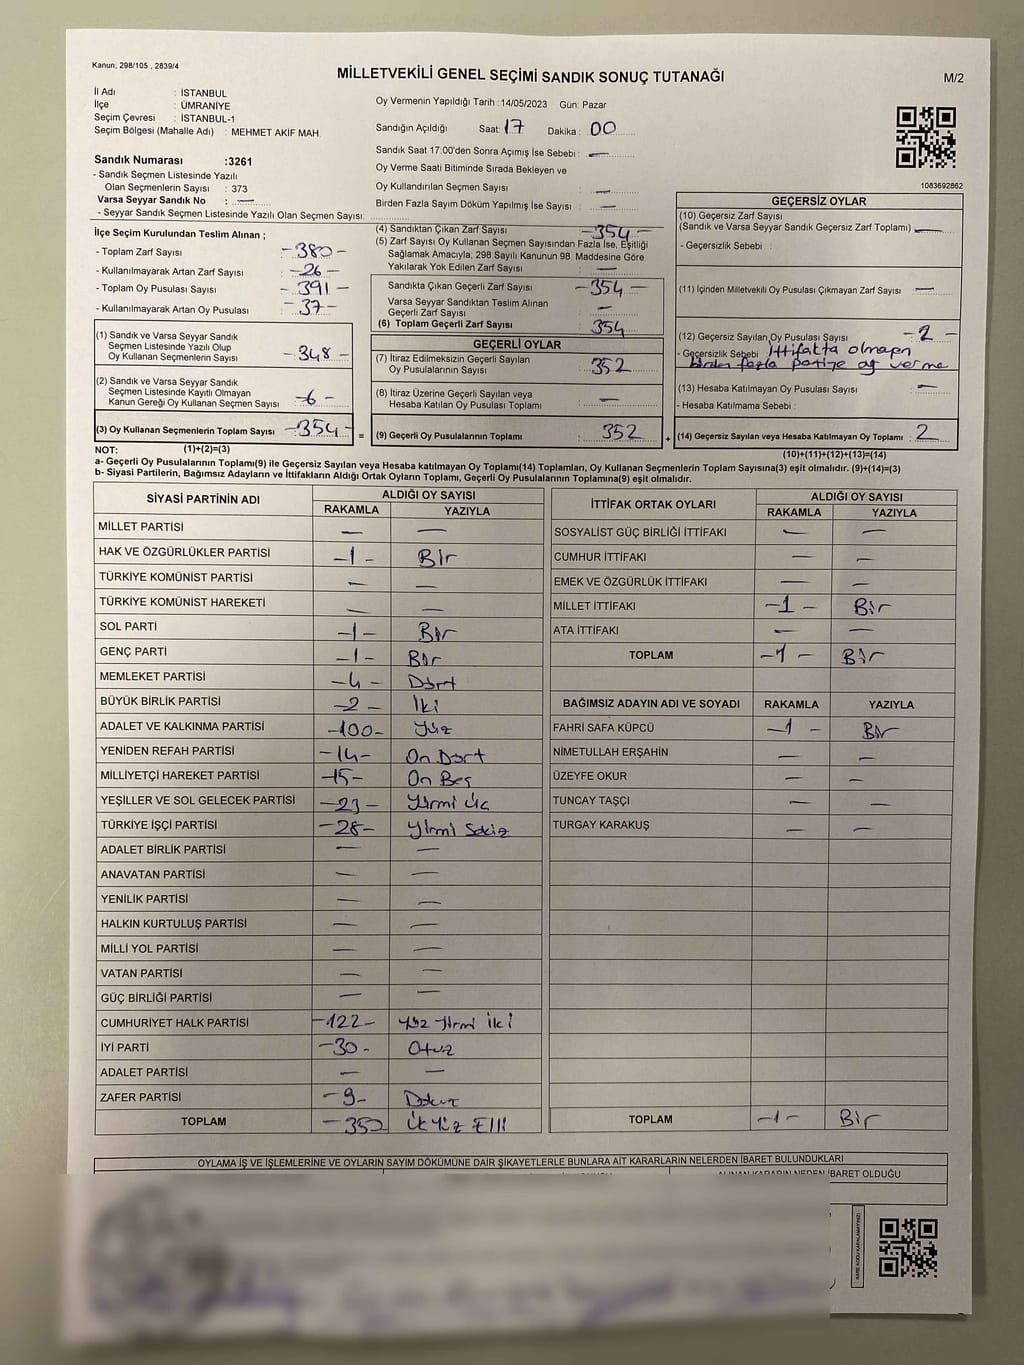 Kanun; 298/105 , 2839/4
MİLLETVEKİLİ GENEL SEÇİMİ SANDIK SONUÇ TUTANAĞI
M/2
İl Adı : İSTANBUL
İlçe : ÜMRANİYE
Seçim Çevresi : İSTANBUL-1
Seçim Bölgesi (Mahalle Adı) : MEHMET AKİF MAH.
Sandık Numarası :3261
- Sandık Seçmen Listesinde Yazılı
Olan Seçmenlerin Sayısı : 373
Varsa Seyyar Sandık No : —
- Seyyar Sandık Seçmen Listesinde Yazılı Olan Seçmen Sayısı:
Oy Vermenin Yapıldığı Tarih :14/05/2023 Gün: Pazar
Sandığın Açıldığı Saat: 17 Dakika : 00
Sandık Saat 17:00'den Sonra Açımış İse Sebebi : —
Oy Verme Saati Bitiminde Sırada Bekleyen ve
Oy Kullandırılan Seçmen Sayısı : —
Birden Fazla Sayım Döküm Yapılmış İse Sayısı : —
1083692862
İlçe Seçim Kurulundan Teslim Alınan ;
- Toplam Zarf Sayısı : -380-
- Kullanılmayarak Artan Zarf Sayısı : -26-
- Toplam Oy Pusulası Sayısı : -391-
- Kullanılmayarak Artan Oy Pusulası : -37-
(1) Sandık ve Varsa Seyyar Sandık
Seçmen Listesinde Yazılı Olup
Oy Kullanan Seçmenlerin Sayısı : -348-
(2) Sandık ve Varsa Seyyar Sandık
Seçmen Listesinde Kayıtlı Olmayan
Kanun Gereği Oy Kullanan Seçmen Sayısı : -6-
(3) Oy Kullanan Seçmenlerin Toplam Sayısı : -354-
(4) Sandıktan Çıkan Zarf Sayısı : -354-
(5) Zarf Sayısı Oy Kullanan Seçmen Sayısından Fazla İse, Eşitliği
Sağlamak Amacıyla; 298 Sayılı Kanunun 98. Maddesine Göre
Yakılarak Yok Edilen Zarf Sayısı : —
Sandıkta Çıkan Geçerli Zarf Sayısı : -354-
Varsa Seyyar Sandıktan Teslim Alınan
Geçerli Zarf Sayısı : —
(6) Toplam Geçerli Zarf Sayısı : 354
GEÇERLİ OYLAR
(7) İtiraz Edilmeksizin Geçerli Sayılan
Oy Pusulalarının Sayısı : 352
(8) İtiraz Üzerine Geçerli Sayılan veya
Hesaba Katılan Oy Pusulası Toplamı : —
= (9) Geçerli Oy Pusulalarının Toplamı : 352
GEÇERSİZ OYLAR
(10) Geçersiz Zarf Sayısı
(Sandık ve Varsa Seyyar Sandık Geçersiz Zarf Toplamı) : —
- Geçersizlik Sebebi :
(11) İçinden Milletvekili Oy Pusulası Çıkmayan Zarf Sayısı : —
(12) Geçersiz Sayılan Oy Pusulası Sayısı : -2-
- Geçersizlik Sebebi : İttifakta olmayan
birden fazla partiye oy verme
(13) Hesaba Katılmayan Oy Pusulası Sayısı : —
- Hesaba Katılmama Sebebi :
+ (14) Geçersiz Sayılan veya Hesaba Katılmayan Oy Toplamı : 2
NOT: (1)+(2)=(3) (10)+(11)+(12)+(13)=(14)
a- Geçerli Oy Pusulalarının Toplamı(9) ile Geçersiz Sayılan veya Hesaba katılmayan Oy Toplamı(14) Toplamları, Oy Kullanan Seçmenlerin Toplam Sayısına(3) eşit olmalıdır. (9)+(14)=(3)
b- Siyasi Partilerin, Bağımsız Adayların ve İttifakların Aldığı Ortak Oyların Toplamı, Geçerli Oy Pusulalarının Toplamına(9) eşit olmalıdır.
SİYASİ PARTİNİN ADI ALDIĞI OY SAYISI
RAKAMLA YAZIYLA
MİLLET PARTİSİ — —
HAK VE ÖZGÜRLÜKLER PARTİSİ -1- Bir
TÜRKİYE KOMÜNİST PARTİSİ — —
TÜRKİYE KOMÜNİST HAREKETİ — —
SOL PARTİ -1- Bir
GENÇ PARTİ -1- Bir
MEMLEKET PARTİSİ -4- Dört
BÜYÜK BİRLİK PARTİSİ -2- İki
ADALET VE KALKINMA PARTİSİ -100- Yüz
YENİDEN REFAH PARTİSİ -14- On Dört
MİLLİYETÇİ HAREKET PARTİSİ -15- On Beş
YEŞİLLER VE SOL GELECEK PARTİSİ -23- Yirmi Üç
TÜRKİYE İŞÇİ PARTİSİ -28- Yirmi Sekiz
ADALET BİRLİK PARTİSİ — —
ANAVATAN PARTİSİ — —
YENİLİK PARTİSİ — —
HALKIN KURTULUŞ PARTİSİ — —
MİLLİ YOL PARTİSİ — —
VATAN PARTİSİ — —
GÜÇ BİRLİĞİ PARTİSİ — —
CUMHURİYET HALK PARTİSİ -122- Yüz Yirmi İki
İYİ PARTİ -30- Otuz
ADALET PARTİSİ — —
ZAFER PARTİSİ -9- Dokuz
TOPLAM -350- İki Yüz Elli
İTTİFAK ORTAK OYLARI ALDIĞI OY SAYISI
RAKAMLA YAZIYLA
SOSYALİST GÜÇ BİRLİĞİ İTTİFAKI — —
CUMHUR İTTİFAKI — —
EMEK VE ÖZGÜRLÜK İTTİFAKI — —
MİLLET İTTİFAKI -1- Bir
ATA İTTİFAKI — —
TOPLAM -1- Bir
BAĞIMSIZ ADAYIN ADI VE SOYADI RAKAMLA YAZIYLA
FAHRİ SAFA KÜPCÜ -1- Bir
NİMETULLAH ERŞAHİN — —
ÜZEYFE OKUR — —
TUNCAY TAŞÇI — —
TURGAY KARAKUŞ — —
TOPLAM -1- Bir
OYLAMA İŞ VE İŞLEMLERİNE VE OYLARIN SAYIM DÖKÜMÜNE DAİR ŞİKAYETLERLE BUNLARA AİT KARARLARIN NELERDEN İBARET BULUNDUKLARI
ALINAN KARARIN NEDEN İBARET OLDUĞU